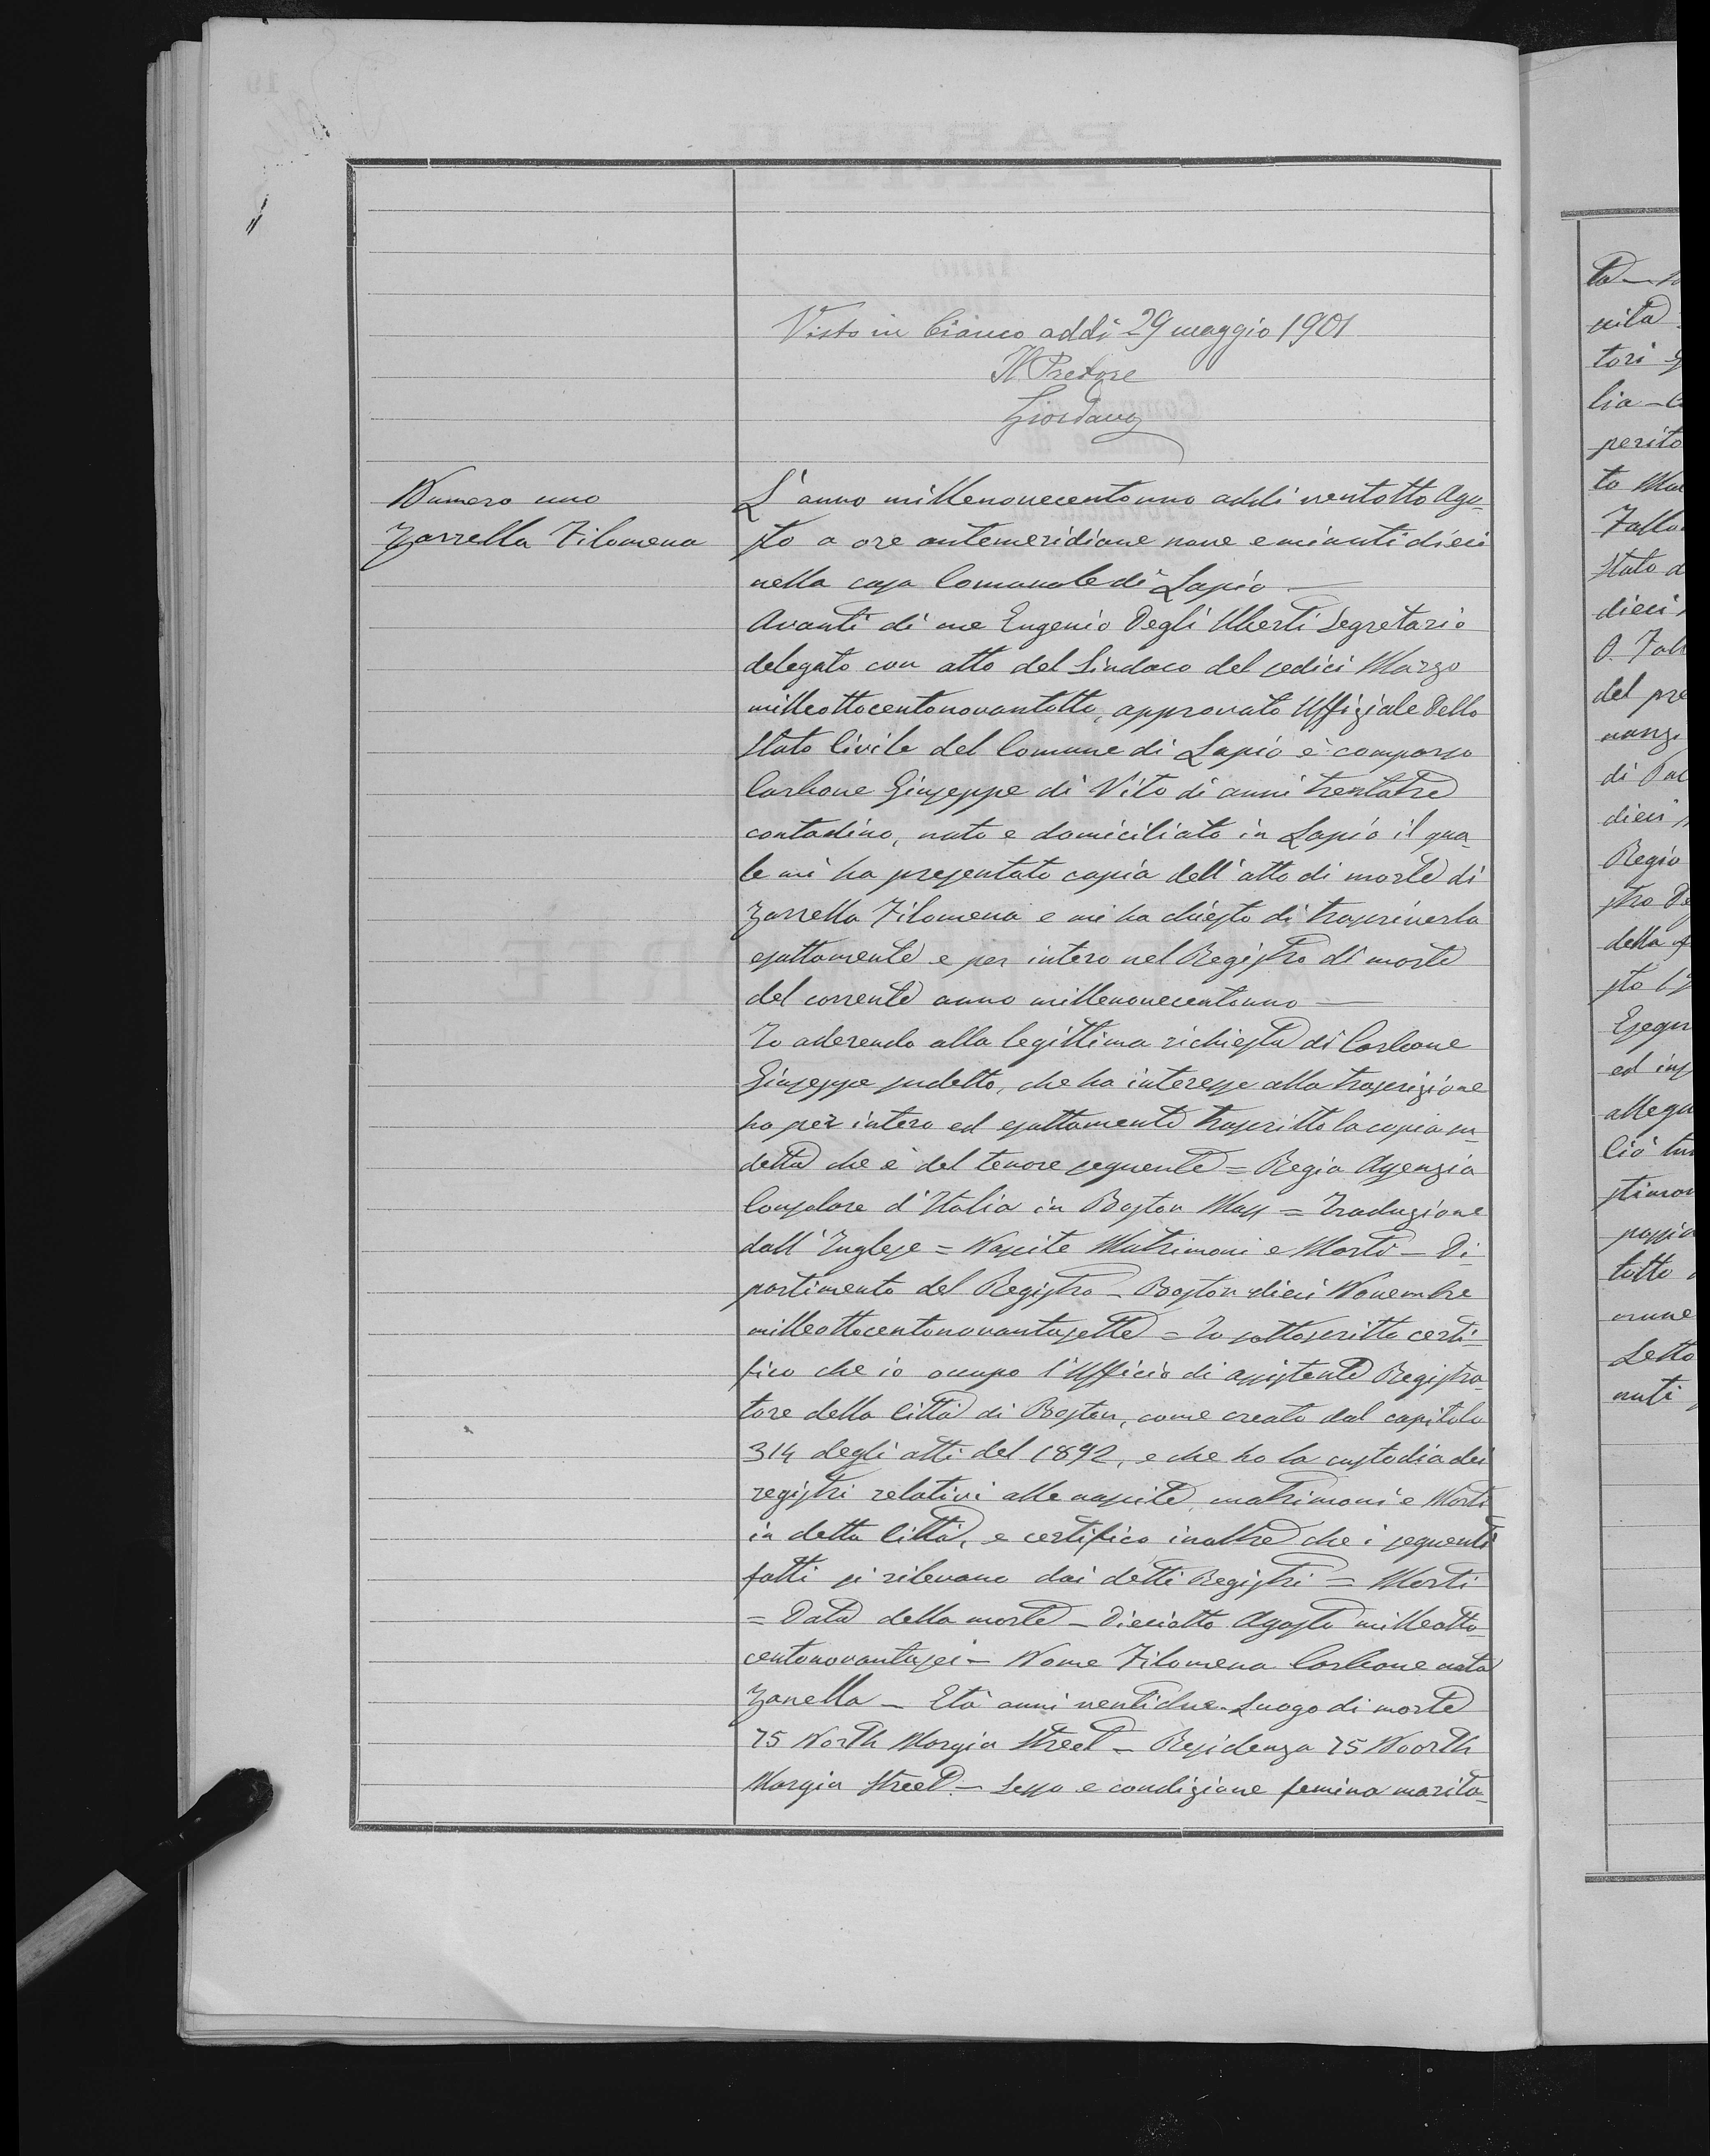 Visto in bianco addì 29 maggio 1901
Il Pretore
Giordano
Numero uno
Zarrella Filomena
L'anno millenovecentouno addì ventotto Ago-
sto a ore antemeridiane nove e minuti dieci
nella casa Comunale di Lapio —
Avanti di me Eugenio Degli Uberti Segretario
delegato con atto del Sindaco del sedici Marzo
milleottocentonovantotto, approvato Uffiziale dello
Stato Civile del Comune di Lapio è comparso
Carbone Giuseppe di Vito di anni trentatre
contadino, nato e domiciliato in Lapio il qua-
le mi ha presentato copia dell'atto di morte di
Zarrella Filomena e mi ha chiesto di trascriverla
esattamente e per intero nel Registro di morte
del corrente anno millenovecentouno —
Io aderendo alla legittima richiesta di Carbone
Giuseppe sudetto, che ha interesse alla trascrizione
ho per intero ed esattamente trascritto la copia su-
detta che è del tenore seguente = Regia Agenzia
Consolare d'Italia in Boston Mass = Traduzione
dall'Inglese = Nascite Matrimoni e Morti — Di-
partimento del Registro — Boston dieci Novembre
milleottocentonovantasette = Io sottoscritto certi-
fico che io occupo l'Ufficio di assistente Registra-
tore della Città di Boston, come creato dal capitolo
314 degli atti del 1892, e che ho la custodia dei
registri relativi alle nascite, matrimoni e Morti
in detta Città, e certifico inoltre che i seguenti
fatti si rilevano dai detti Registri = Morti
= Data della morte — Dieciotto Agosto milleotto-
centonovantasei — Nome Filomena Carbone nata
Zanella — Età anni ventidue. Luogo di morte
75 North Margin Street — Residenza 75 Noorth
Margin Street. — Sesso e condizione femina marita-
pita
tori
lia —
perito
to
Stato
dieci
del pre
di
dieci
Regio
stro De
della
sto
Esegu
ed
allega
Ciò
tutto
Letto
nuti